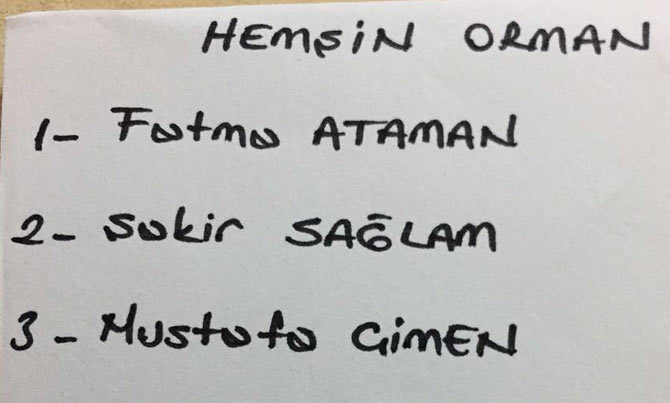 HEMŞİN ORMAN
1- Fatma ATAMAN
2- Sakir SAĞLAM
3- Mustafa GİMEN